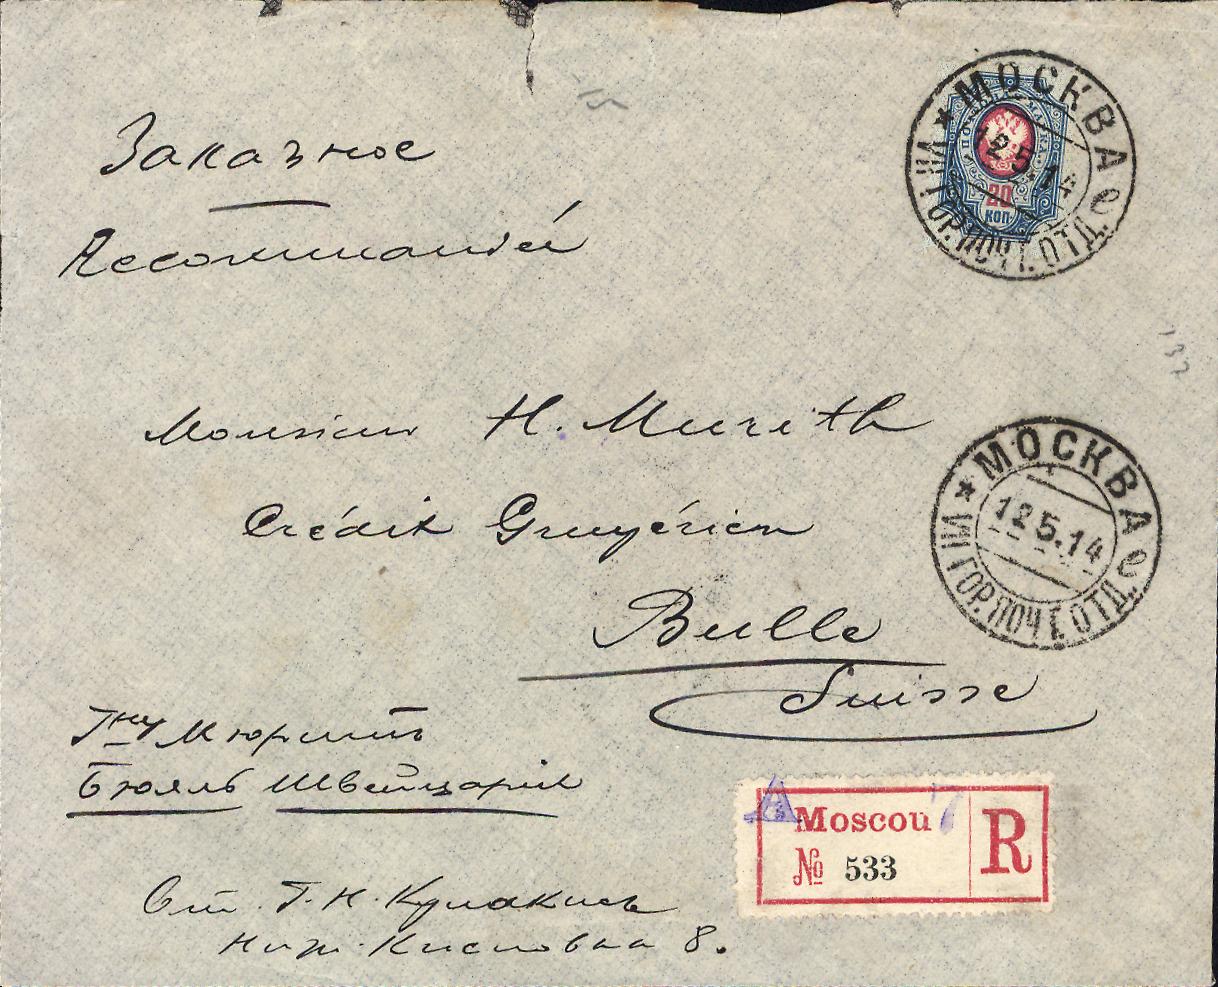 Заказное
Recommandée
МОСКВА
12.5.14
VIII ГОР. ПОЧТ. ОТД.
20
КОП
Monsieur H. Murith
Crédit Gruyérien
Bulle
Suisse
МОСКВА
12.5.14
VIII ГОР. ПОЧТ. ОТД.
Гну Мюритъ
Бюлль Швейцарія
Moscou 7
№ 533
R
От. Г. Н. Кулакинъ
Ниж. Кисловка 8.